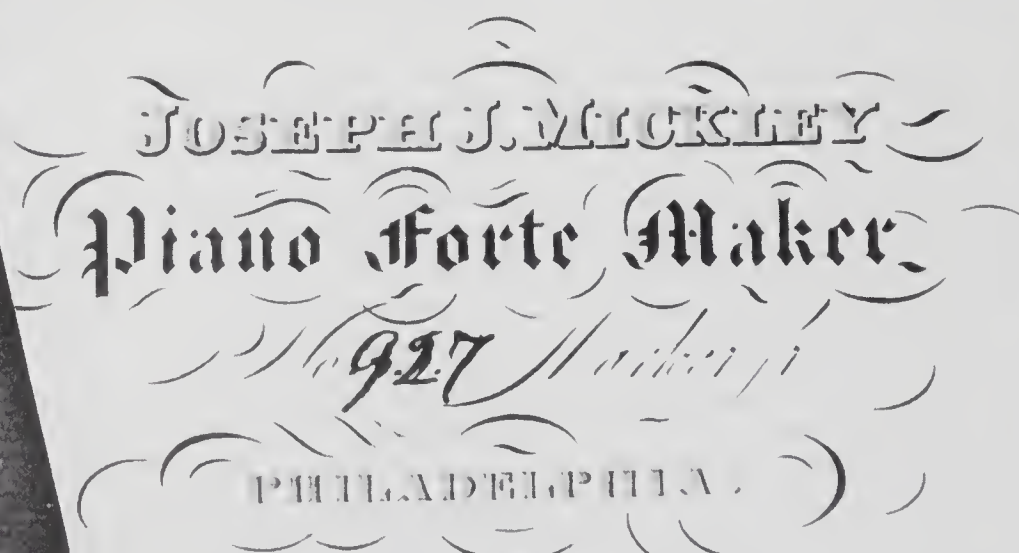 JOSEPH J. MICKLEY
Piano Forte Maker
No 927 Market st
PHILADELPHIA.